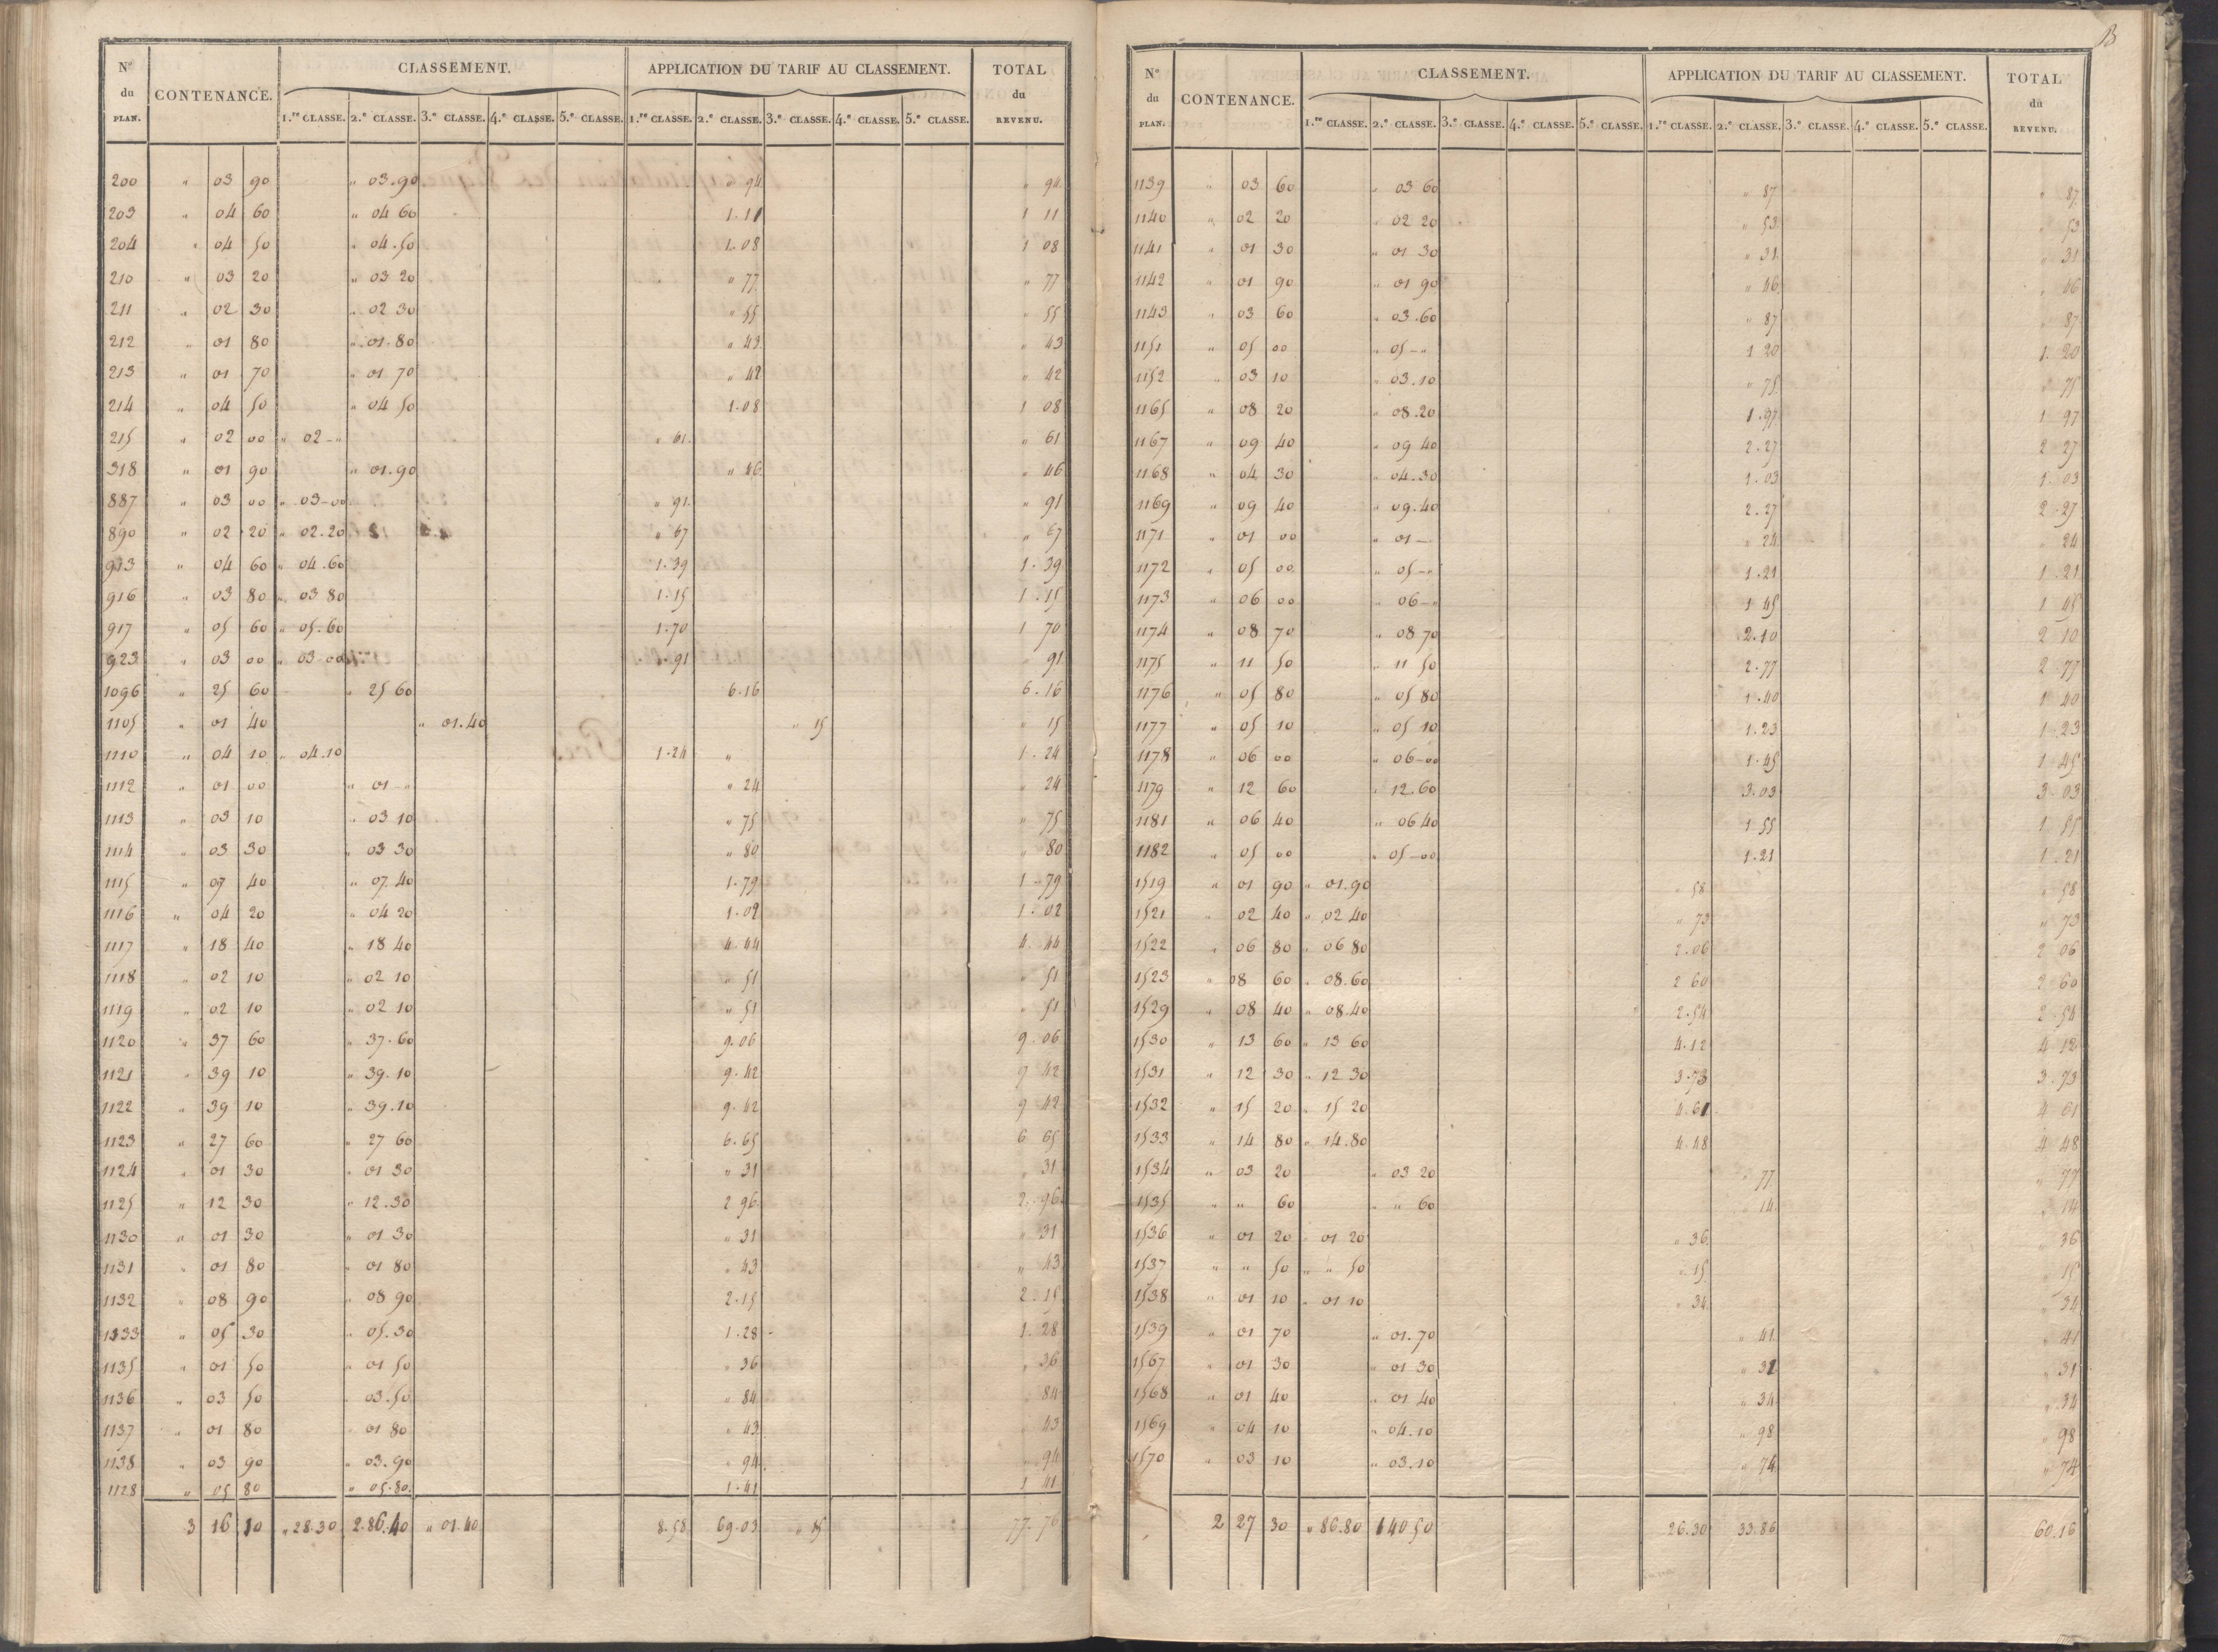 N° du PLAN. CONTENANCE. CLASSEMENT. APPLICATION DU TARIF AU CLASSEMENT. TOTAL du REVENU.
1.re CLASSE. 2.e CLASSE. 3.e CLASSE. 4.e CLASSE. 5.e CLASSE. 1.re CLASSE. 2.e CLASSE. 3.e CLASSE. 4.e CLASSE. 5.e CLASSE.
200 " 03 90 " 03.90 " 94 " 94
203 " 04 60 " 04 60 1.11 1 11
204 " 04 50 " 04.50 1.08 1 08
210 " 03 20 " 03 20 " 77 " 77
211 " 02 30 " 02 30 " 55 " 55
212 " 01 80 " 01.80 " 43 " 43
213 " 01 70 " 01 70 " 42 " 42
214 " 04 50 " 04 50 1.08 1 08
215 " 02 00 " 02-" " 61 " 61
318 " 01 90 " 01.90 " 46 " 46
887 " 03 00 " 03-00 " 91 " 91
890 " 02 20 " 02.20 " 67 " 67
913 " 04 60 " 04.60 1.39 1.39
916 " 03 80 " 03 80 1.15 1.15
917 " 05 60 " 05.60 1.70 1 70
923 " 03 00 " 03-00 " 91 " 91
1096 " 25 60 " 25 60 6.16 6.16
1105 " 01 40 " 01.40 " 15 " 15
1110 " 04 10 " 04.10 1.24 " 1.24
1112 " 01 00 " 01-" " 24 " 24
1113 " 03 10 " 03 10 " 75 " 75
1114 " 03 30 " 03 30 " 80 " 80
1115 " 07 40 " 07.40 1.79 1-79
1116 " 04 20 " 04 20 1.02 1.02
1117 " 18 40 " 18 40 4.44 4.44
1118 " 02 10 " 02 10 " 51 " 51
1119 " 02 10 " 02 10 " 51 " 51
1120 " 37 60 " 37.60 9.06 9.06
1121 " 39 10 " 39.10 9.42 9 42
1122 " 39 10 " 39.10 9.42 9 42
1123 " 27 60 " 27 60 6.65 6 65
1124 " 01 30 " 01 30 " 31 " 31
1125 " 12 30 " 12.30 2 96 2.96
1130 " 01 30 " 01 30 " 31 " 31
1131 " 01 80 " 01 80 " 43 " 43
1132 " 08 90 " 08 90 2.15 2.15
1133 " 05 30 " 05.30 1.28 1.28
1135 " 01 50 " 01 50 " 36 " 36
1136 " 03 50 " 03.50 " 84 " 84
1137 " 01 80 " 01 80 " 43 " 43
1138 " 03 90 " 03.90 " 94 " 94
1128 " 05 80 " 05.80 1.41 1 41
3 16 10 " 28.30 2.86.40 " 01.40 8.58 69.03 " 15 77.76
13
N° du PLAN. CONTENANCE. CLASSEMENT. APPLICATION DU TARIF AU CLASSEMENT. TOTAL du REVENU.
1.re CLASSE. 2.e CLASSE. 3.e CLASSE. 4.e CLASSE. 5.e CLASSE. 1.re CLASSE. 2.e CLASSE. 3.e CLASSE. 4.e CLASSE. 5.e CLASSE.
1139 " 03 60 " 03 60 " 87 " 87
1140 " 02 20 " 02 20 " 53 " 53
1141 " 01 30 " 01 30 " 31 " 31
1142 " 01 90 " 01 90 " 46 " 46
1143 " 03 60 " 03.60 " 87 " 87
1151 " 05 00 " 05-" 1 20 1.20
1152 " 03 10 " 03.10 " 75 " 75
1165 " 08 20 " 08.20 1.97 1 97
1167 " 09 40 " 09 40 2.27 2 27
1168 " 04 30 " 04.30 1.03 1.03
1169 " 09 40 " 09.40 2.27 2.27
1171 " 01 00 " 01- " 24 " 24
1172 " 05 00 " 05-" 1.21 1.21
1173 " 06 00 " 06-" 1 45 1 45
1174 " 08 70 " 08 70 2.10 2 10
1175 " 11 50 " 11 50 2.77 2 77
1176 " 05 80 " 05 80 1.40 1 40
1177 " 05 10 " 05 10 1.23 1.23
1178 " 06 00 " 06-00 1.45 1 45
1179 " 12 60 " 12.60 3.03 3.03
1181 " 06 40 " 06 40 1 55 1 55
1182 " 05 00 " 05-00 1.21 1.21
1519 " 01 90 " 01.90 " 58 " 58
1521 " 02 40 " 02 40 " 73 " 73
1522 " 06 80 " 06 80 2.06 2 06
1523 " 08 60 " 08.60 2 60 2 60
1529 " 08 40 " 08.40 2.54 2.54
1530 " 13 60 " 13 60 4.12 4 12
1531 " 12 30 " 12 30 3.73 3.73
1532 " 15 20 " 15 20 4.61 4 61
1533 " 14 80 " 14.80 4.48 4 48
1534 " 03 20 " 03 20 " 77 " 77
1535 " " 60 " " 60 " 14 " 14
1536 " 01 20 " 01 20 " 36 " 36
1537 " " 50 " " 50 " 15 " 15
1538 " 01 10 " 01 10 " 34 " 34
1539 " 01 70 " 01.70 " 41 " 41
1567 " 01 30 " 01 30 " 31 " 31
1568 " 01 40 " 01 40 " 34 " 34
1569 " 04 10 " 04.10 " 98 " 98
1570 " 03 10 " 03.10 " 74 " 74
2 27 30 " 86.80 1 40 50 26.30 33.86 60.16